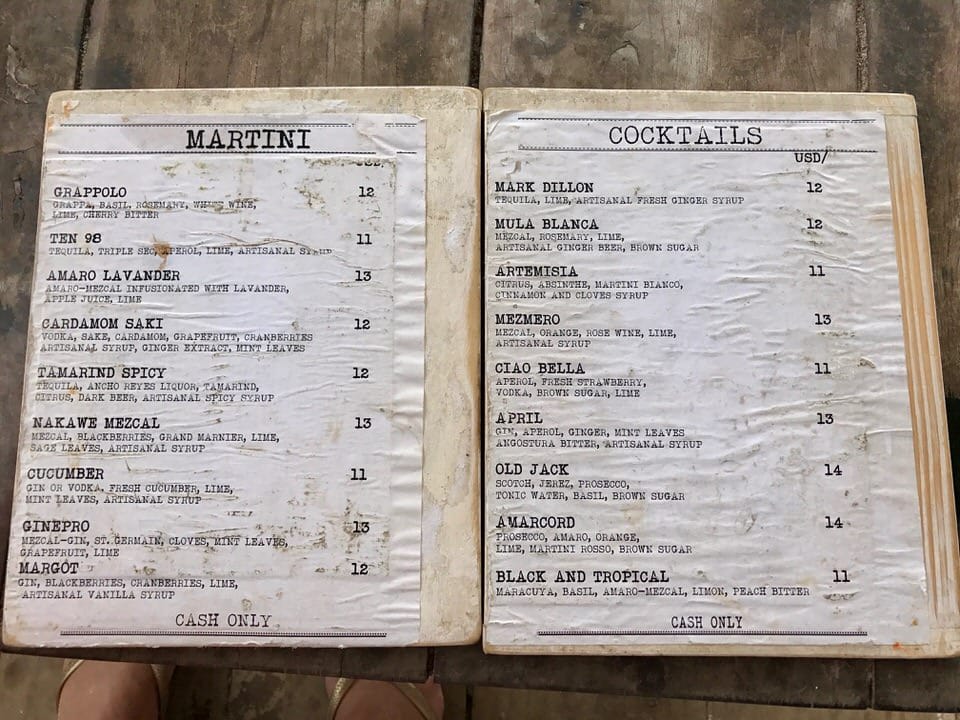 MARTINI
GRAPPOLO 12
GRAPPA, BASIL, ROSEMARY, WHITE WINE,
LIME, CHERRY BITTER
TEN 98 11
TEQUILA, TRIPLE SEC, APEROL, LIME, ARTISANAL SYRUP
AMARO LAVANDER 13
AMARO-MEZCAL INFUSIONATED WITH LAVANDER,
APPLE JUICE, LIME
CARDAMOM SAKI 12
VODKA, SAKE, CARDAMOM, GRAPEFRUIT, CRANBERRIES
ARTISANAL SYRUP, GINGER EXTRACT, MINT LEAVES
TAMARIND SPICY 12
TEQUILA, ANCHO REYES LIQUOR, TAMARIND,
CITRUS, DARK BEER, ARTISANAL SPICY SYRUP
NAKAWE MEZCAL 13
MEZCAL, BLACKBERRIES, GRAND MARNIER, LIME,
SAGE LEAVES, ARTISANAL SYRUP
CUCUMBER 11
GIN OR VODKA, FRESH CUCUMBER, LIME,
MINT LEAVES, ARTISANAL SYRUP
GINEPRO 13
MEZCAL-GIN, ST. GERMAIN, CLOVES, MINT LEAVES,
GRAPEFRUIT, LIME
MARGOT 12
GIN, BLACKBERRIES, CRANBERRIES, LIME,
ARTISANAL VANILLA SYRUP
CASH ONLY
COCKTAILS
USD/
MARK DILLON 12
TEQUILA, LIME, ARTISANAL FRESH GINGER SYRUP
MULA BLANCA 12
MEZCAL, ROSEMARY, LIME,
ARTISANAL GINGER BEER, BROWN SUGAR
ARTEMISIA 11
CITRUS, ABSINTHE, MARTINI BIANCO,
CINNAMON AND CLOVES SYRUP
MEZMERO 13
MEZCAL, ORANGE, ROSE WINE, LIME,
ARTISANAL SYRUP
CIAO BELLA 11
APEROL, FRESH STRAWBERRY,
VODKA, BROWN SUGAR, LIME
APRIL 13
GIN, APEROL, GINGER, MINT LEAVES
ANGOSTURA BITTER, ARTISANAL SYRUP
OLD JACK 14
SCOTCH, JEREZ, PROSECCO,
TONIC WATER, BASIL, BROWN SUGAR
AMARCORD 14
PROSECCO, AMARO, ORANGE,
LIME, MARTINI ROSSO, BROWN SUGAR
BLACK AND TROPICAL 11
MARACUYA, BASIL, AMARO-MEZCAL, LIMON, PEACH BITTER
CASH ONLY